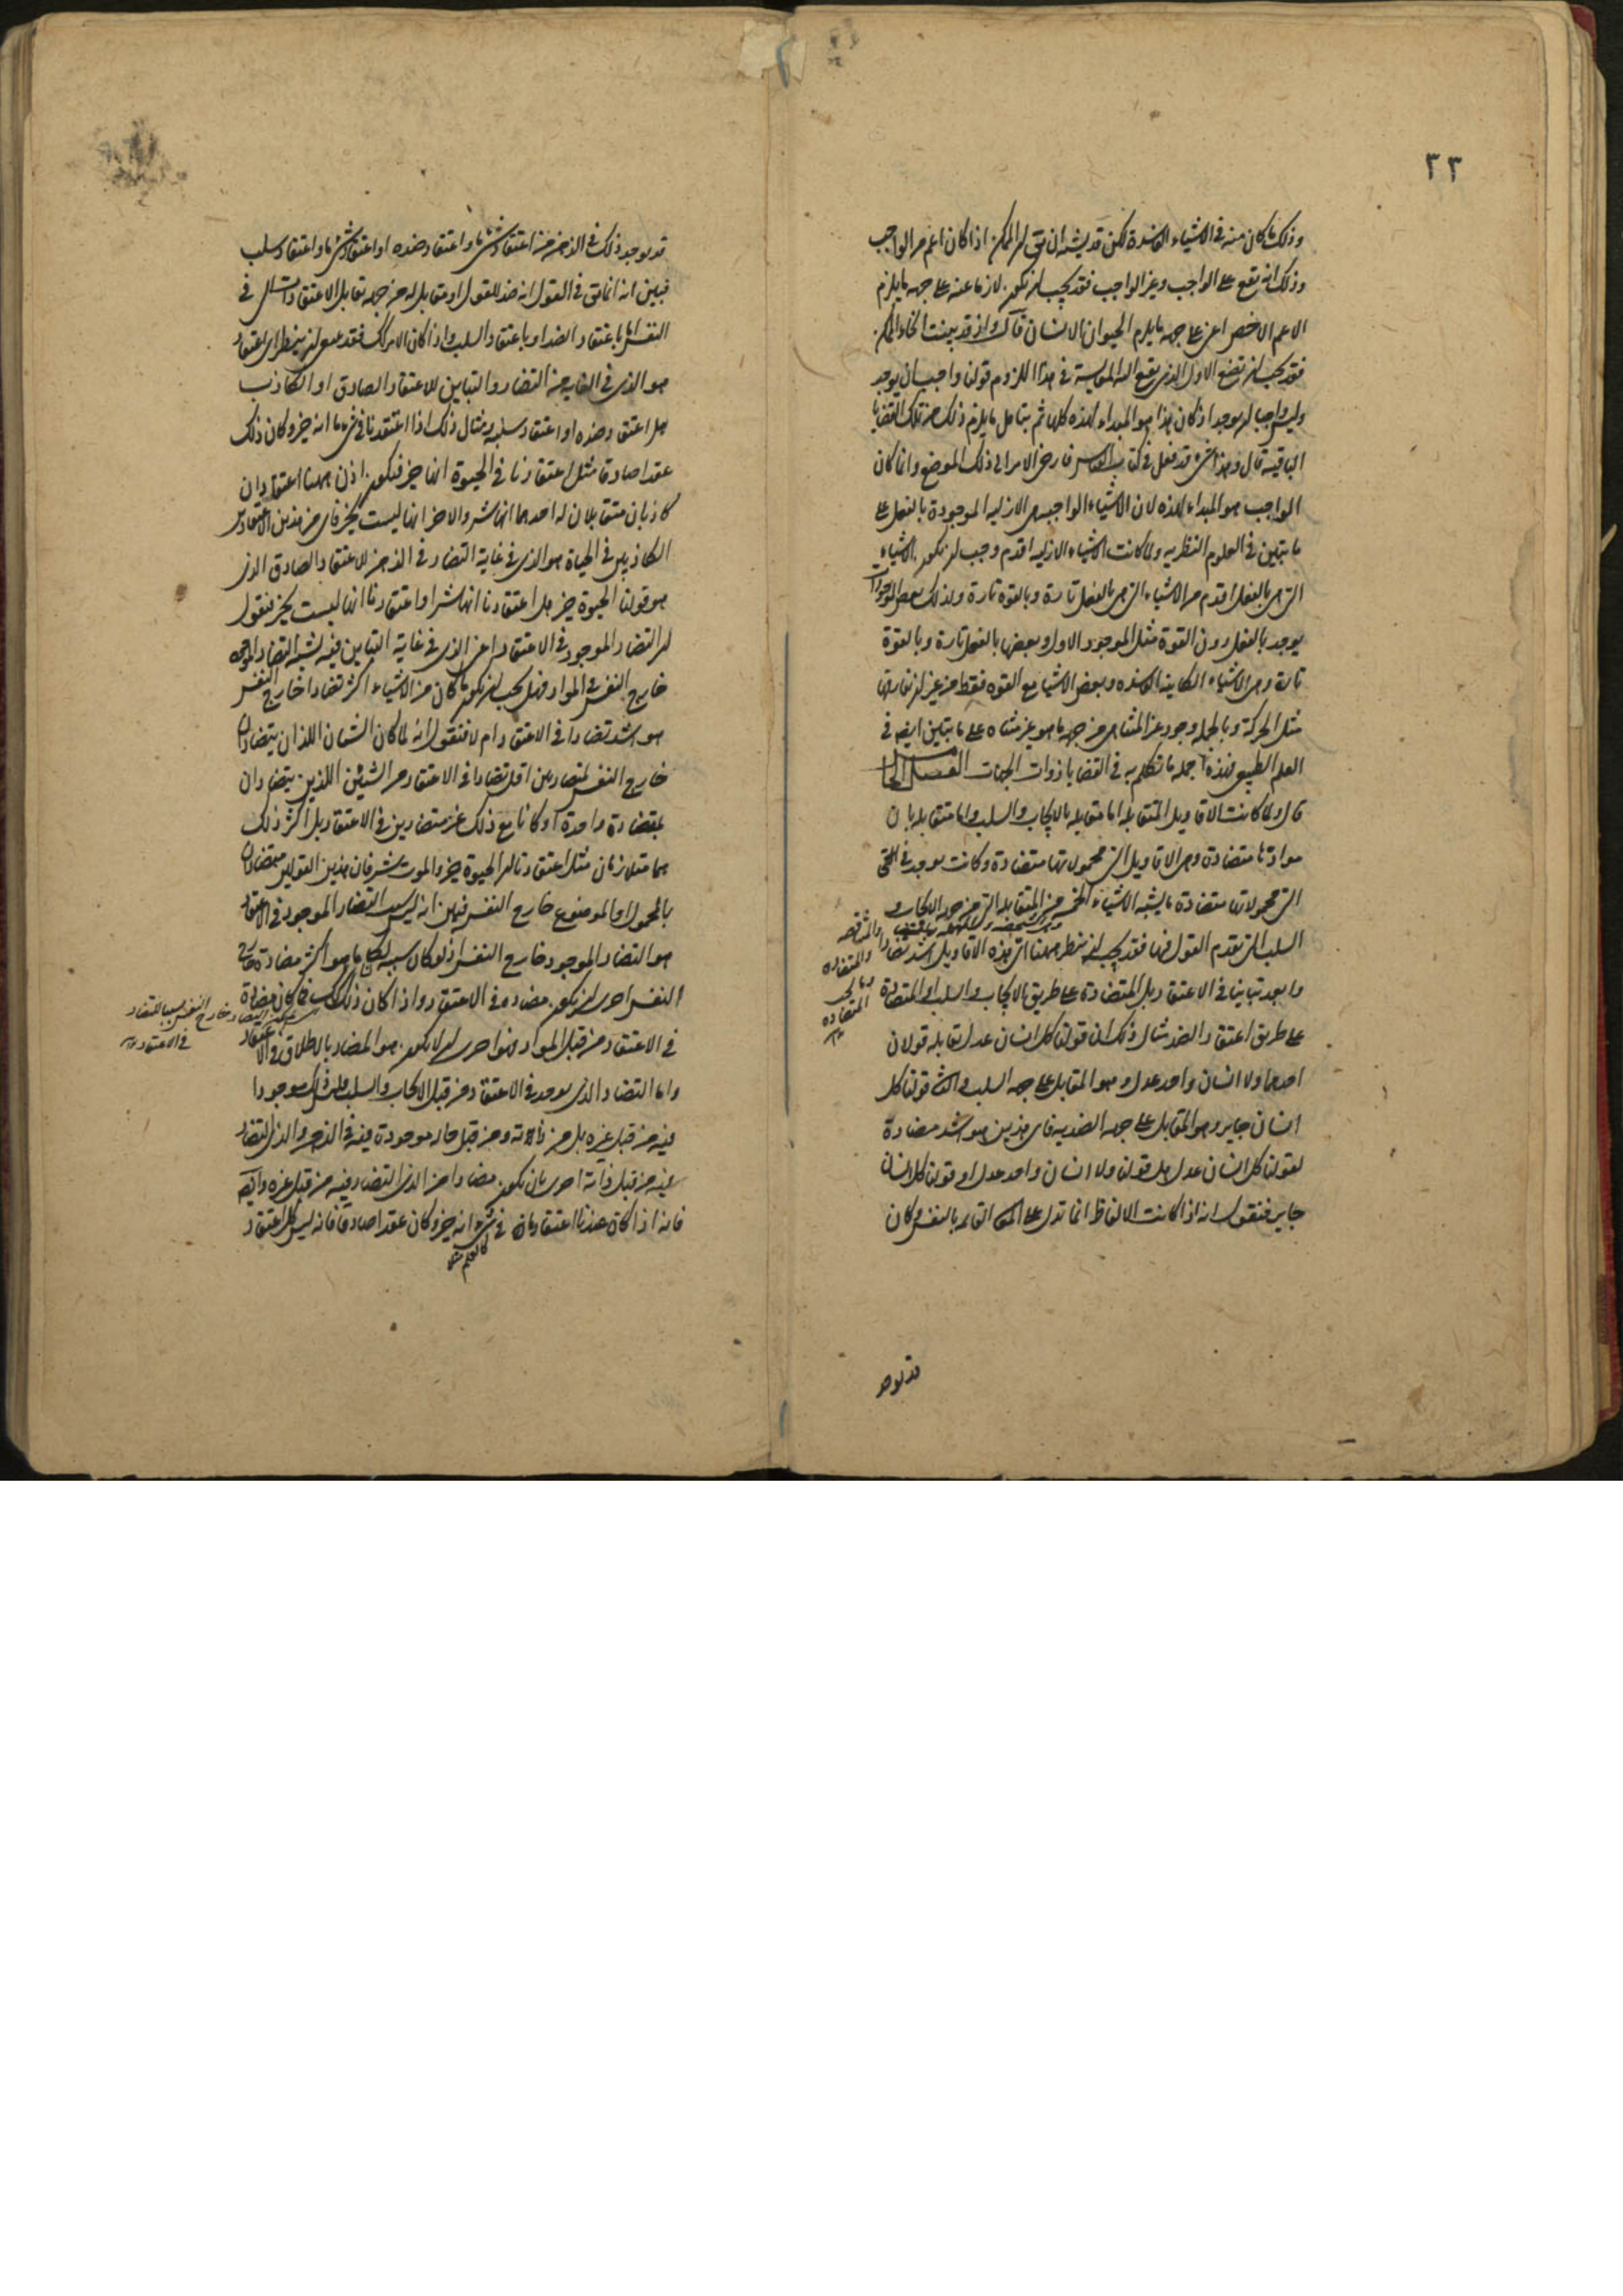 ٢٣
وذلك ما كان منه في الاشياء الفاسدة لكن قد يشبه ان يق ان الممكن اذا كان اعم من الواجب
وذلك انه يقع على الواجب وغير الواجب فقد يجب ان يكون لازما عنه على جهة ما يلزم
الاعم الاخص اعنى على جهة ما يلزم الحيوان الانسان قال واذ قد بينت انحاء الممكن
فقد يجب ان نضع الاول الذي يقع اليه المقايسة في هذا اللزوم قولنا واجب ان يوجد
وليس واجبا ان يوجد اذ كان هذا هو المبداء لهذه كلها ثم يتامل ما يلزم ذلك من تلك القضايا
الباقية قال وهذا شيء قد فعل في كتاب القياس فارخ الامر الى ذلك الموضع وانما كان
الواجب هو المبداء لهذه لان الاشياء الواجبة هي الازلية الموجودة بالفعل على
ما يتبين في العلوم النظرية ولما كانت الاشياء الازلية اقدم وجب ان يكون الاشياء
التي هي بالفعل اقدم من الاشياء التي هي بالفعل تارة وبالقوة تارة ولذلك بعض الموجودات
يوجد بالفعل دون القوة مثل الموجود الاول وبعضها بالفعل تارة وبالقوة
تارة وهي الاشياء الكاينة الفاسدة وبعض الاشيا مع القوه فقط من غير ان يفارقها
مثل الحركة وبالجملة وجود غير المتناهي من جهة ما هو غير متناه على ما يتبين ايضا في
العلم الطبيعي فهذه جملة ما تكلم به في القضايا ذوات الجهات الفصل الخا
قال ولما كانت الاقاويل المتقابلة اما متقابلة بالايجاب والسلب واما متقابلة بان
موادها متضادة وهي الاقاويل التي محمولاتها متضادة وكانت يوجد في
التي محمولاتها متضادة ما يشبه الاشياء الخمسة من المتقابلة التي من جهة الايجاب و
السلب التي تقدم القول فيها فقد يجب ان ننظر ههنا اي هذه الاقاويل اشد تضادا
وابعد تباينا في الاعتقاد هل المتضادة على طريق الايجاب والسلب او المتضادة
على طريق اعتقاد الضد مثال ذلك ان قولنا كل انسان عدل يقابله قولان
احدهما ولا انسان واحد عدل وهو المقابل على جهة السلب والثاني قولنا كل
انسان جاير وهو المقابل على جهة الضدية فاي هذين هو اشد مضادة
لقولنا كل انسان عدل هل قولنا ولا انسان واحد عدل او قولنا كل انسان
جاير فنقول انه اذا كانت الالفاظ انما تدل على المعاني القايمة بالنفس وكان
قد يوجد
قد يوجد ذلك في الذهن من اعتقاد شيء ما واعتقاد ضده او اعتقاد شيء ما واعتقاد سلبه
فبين انه انما يق في القول انه ضد للقول او مقابل له من جهة تقابل الاعتقاد في
النفس اما باعتقاد الضد او باعتقاد السلب واذا كان الامر كذلك فقد ينبغي ان ينظر اي اعتقاد
هو الذي في الغاية من التضاد والتباين للاعتقاد الصادق او الكاذب
هل اعتقاد ضده او اعتقاد سلبه ومثال ذلك اذا اعتقدنا في شيء ما انه خير وكان ذلك
عقدا صادقا مثل اعتقادنا في الحيوة انها خير فيكون اذن ههنا اعتقادان
كاذبان متقابلان له احدهما انها شر والاخر انها ليست بخير فاي من هذين الاعتقادين
الكاذبين في الحياة هو الذي في غاية التضاد في الذهن للاعتقاد الصادق الذي
هو قولنا الحيوة خير هل اعتقادنا انها شر او اعتقادنا انها ليست بخير فنقول
ان التضاد الموجود في الاعتقاد اعنى الذي في غاية التباين فيه يشبه التضاد الموجود
خارج النفس في المواد فهل يجب ان يكون ما كان من الاشياء اكثر تضادا خارج النفس
هو اشد تضادا في الاعتقاد ام لا فنقول انه لما كان الشيئان اللذان يتضادان
خارج النفس بمتضادين اقل تضادا في الاعتقاد من الشيئين اللذين يتضادان
بمتضادة واحدة او كانا مع ذلك غير متضادين في الاعتقاد بل اكثر ذلك
هما متلازمان مثل اعتقادنا ان الحيوة خير والموت شر فان هذين القولين متضادان
بالمحمول والموضوع خارج النفس فبين انه ليس سبب التضاد الموجود في الاعتقاد
هو التضاد الموجود خارج النفس اذ لو كان سببه لكان ما هو اكثر مضادة خارج
النفس احرى ان يكون مضاده في الاعتقاد واذا كان ذلك كذلك فما كان مضادة
في الاعتقاد من قبل المواد فهو احرى ان لا يكون هو المضاد بالاطلاق في الاعتقاد
خارج النفس سببا للتضاد
في الاعتقاد
واما التضاد الذي يوجد في الاعتقاد من قبل الايجاب والسلب فليس ذلك موجودا
فيه من قبل غيره بل من ذاته ومن قبل حال موجودة فيه في الذهن والذي التضاد
فيه من قبل ذاته احرى بان يكون مضادا من الذي التضاد فيه من قبل غيره وايضا
فانه اذا كان عندنا اعتقاد ما في شيء انه خير وكان عقدا صادقا فانه ليس كل اعتقاد